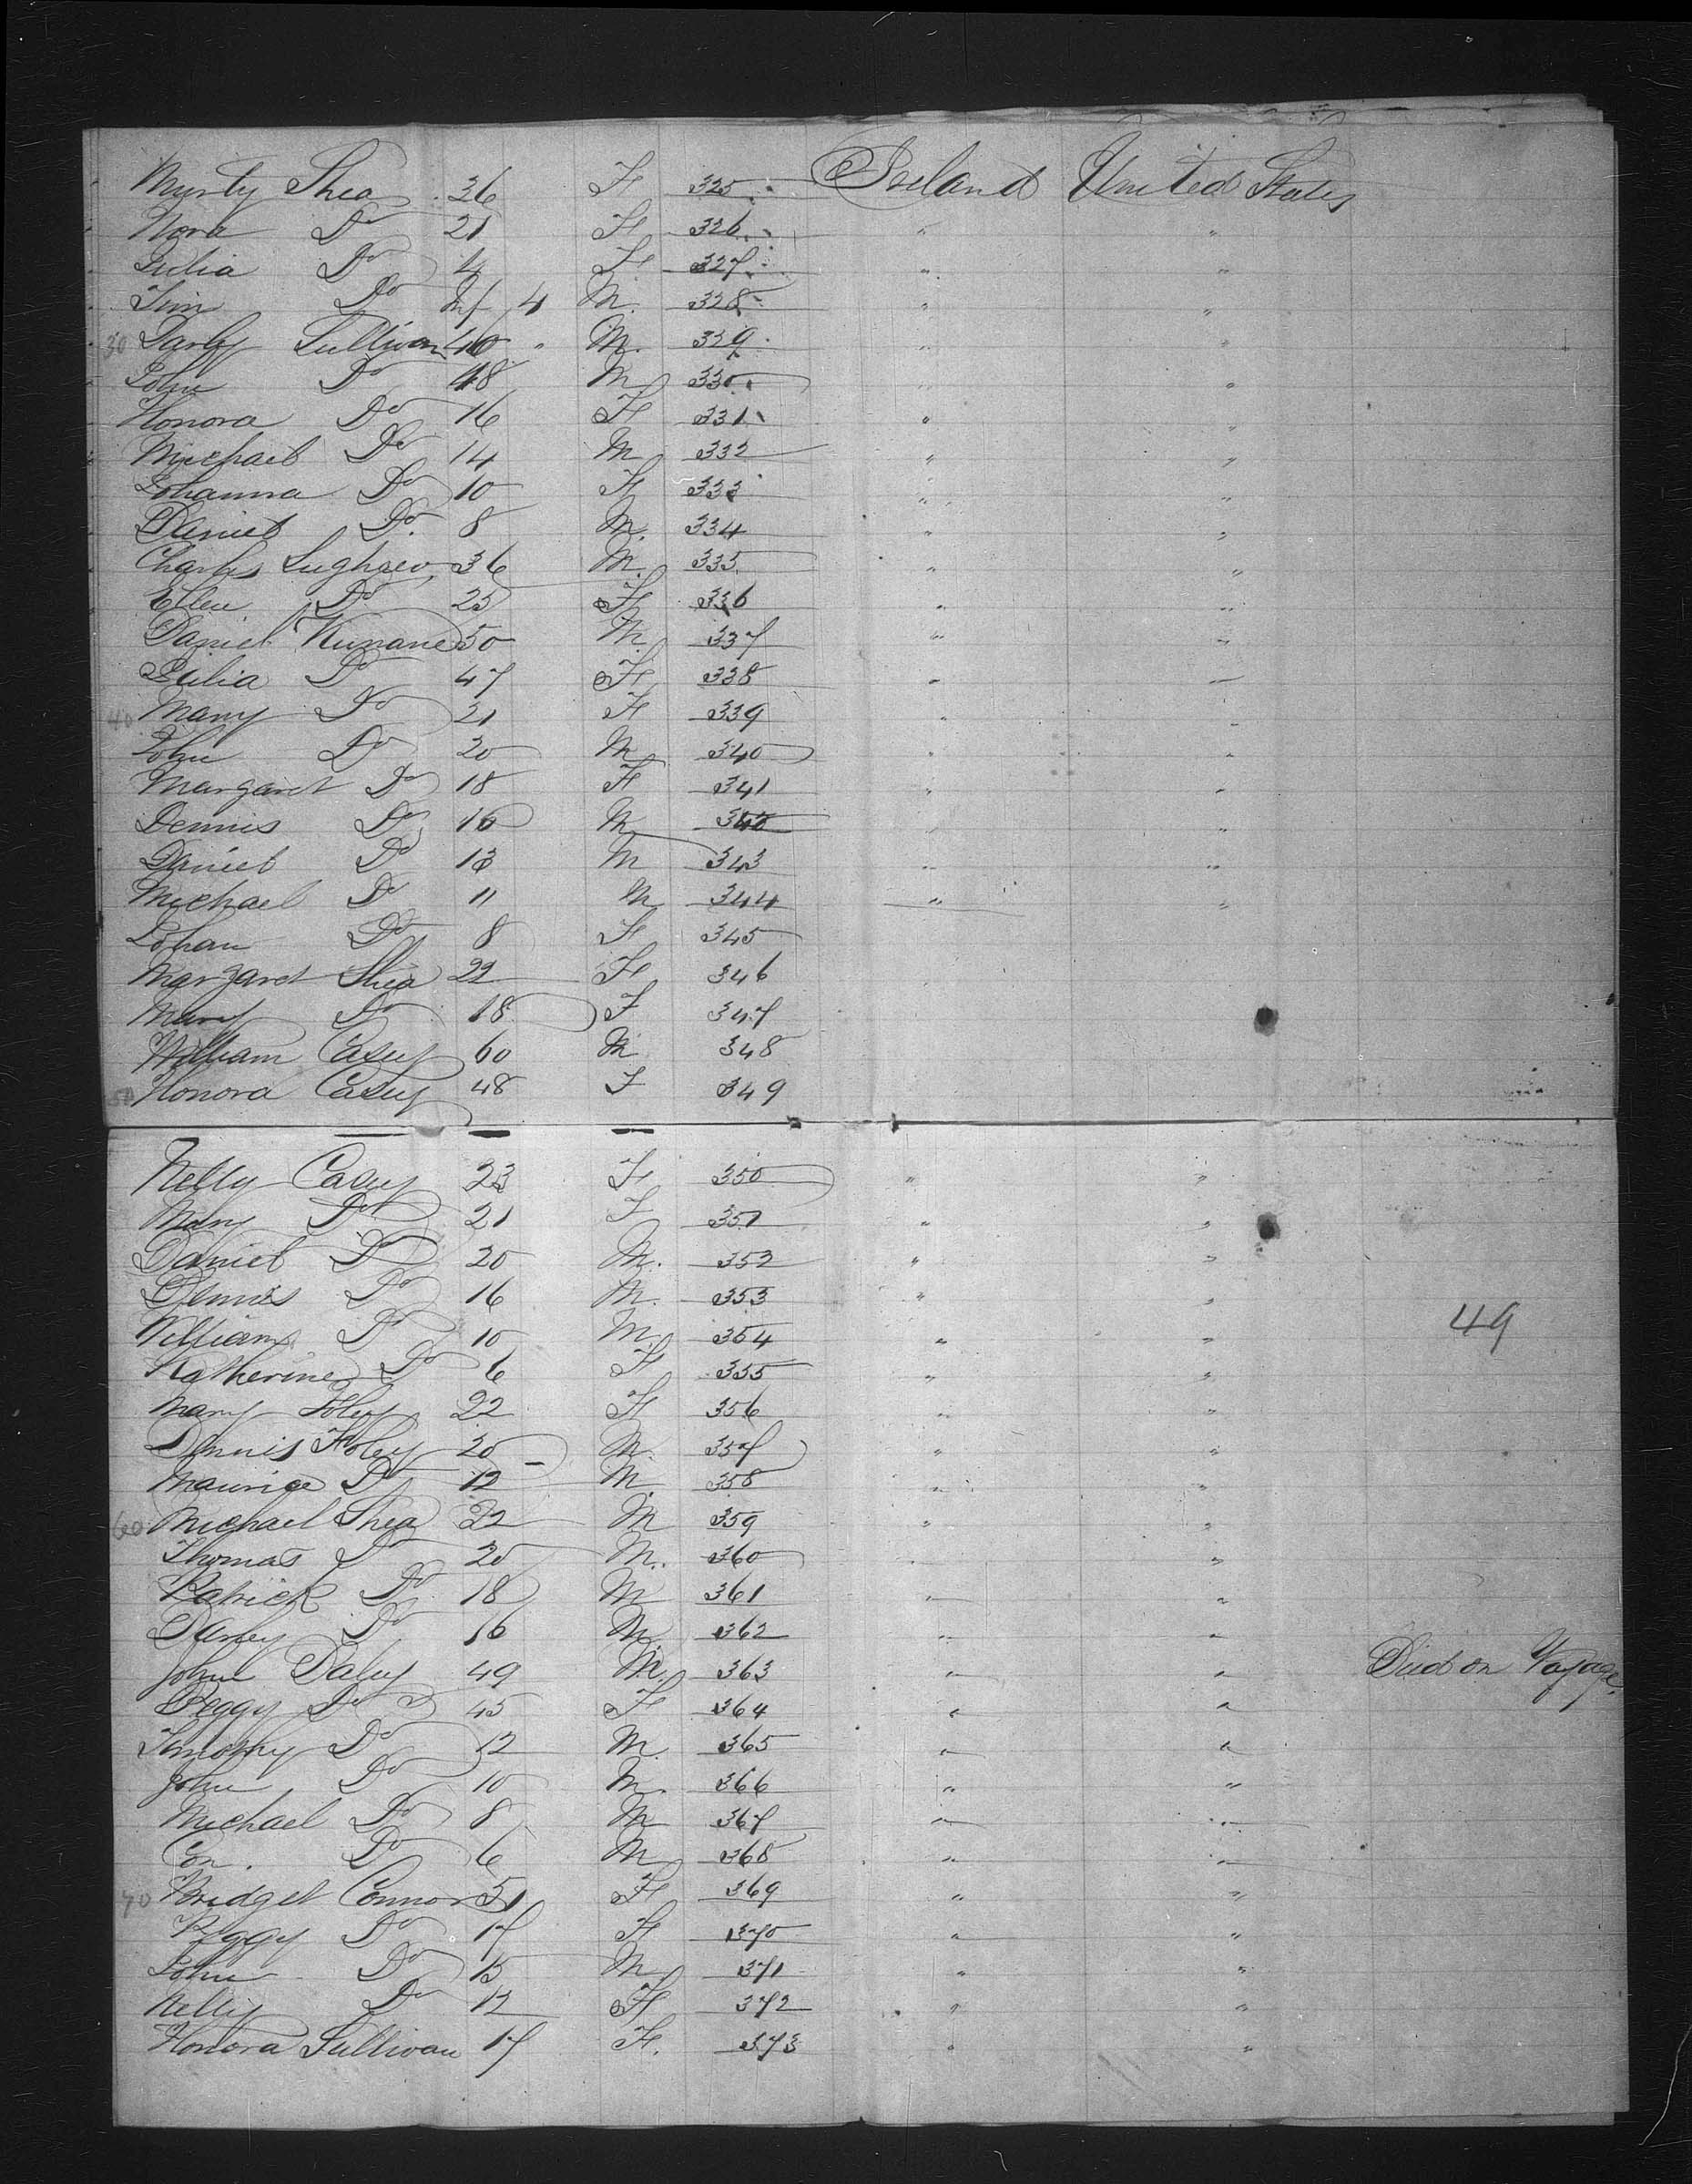 Murty Shea 36 F 325 Ireland United States
Nora Do 21 F 326 " "
Julia Do 4 F 327 " "
Tim Do Inf 4 M 328 " "
30 Darby Sullivan 40 " M. 329 " "
John Do 48 M 330 " "
Honora Do 16 F 331 " "
Michael Do 14 M 332 " "
Johanna Do 10 F 333 " "
Daniel Do. 8 M. 334 " "
Charles 36 M. 335 " "
Ellen Do 25 F 336 " "
Daniel Kunane 50 M. 337 " "
Julia Do 47 F 338 " "
40 Mary Do 21 F 339 " "
John Do 20 M 340 " "
Margaret Do 18 F 341 " "
Dennis Do 16 M " "
Daniel Do 13 M 343 " "
Michael Do 11 M 344 " "
Johan Do 8 F 345
Margaret Shea 22 F 346
Mary Do 18 F 347
William Casey 60 M 348
50 Honora Casey 48 F 349
Nelly Casey 23 F 350 " "
Mary Do 21 F 351 " "
Daniel Do 20 M. 352 " "
Dennis Do 16 M. 353 " "
49
William Do 10 M. 354 " "
Katherine Do 6 F 355 " "
Mary Foley 22 F 356 " "
Dennis Foley 20 M. 357 " "
Maurice Do 12 M. 358 " "
60 Michael Shea 22 M 359 " "
Thomas Do 20 M. 360 " "
Patrick Do 18 M 361 " "
Darby Do 16 M 362 " "
John Daley 49 M. 363 " " Died on Voyage.
Peggy Do 45 F 364 " "
Timothy Do 12 M. 365 " "
John Do 10 M. 366 " "
Michael Do 8 M 367 " "
Con. Do 6 M 368 " "
70 Bridget Connor 51 F 369 " "
Peggy Do 17 F 370 " "
John Do 15 M 371 " "
Nelly Do 12 F 372 " "
Honora Sullivan 17 F. 373 " "